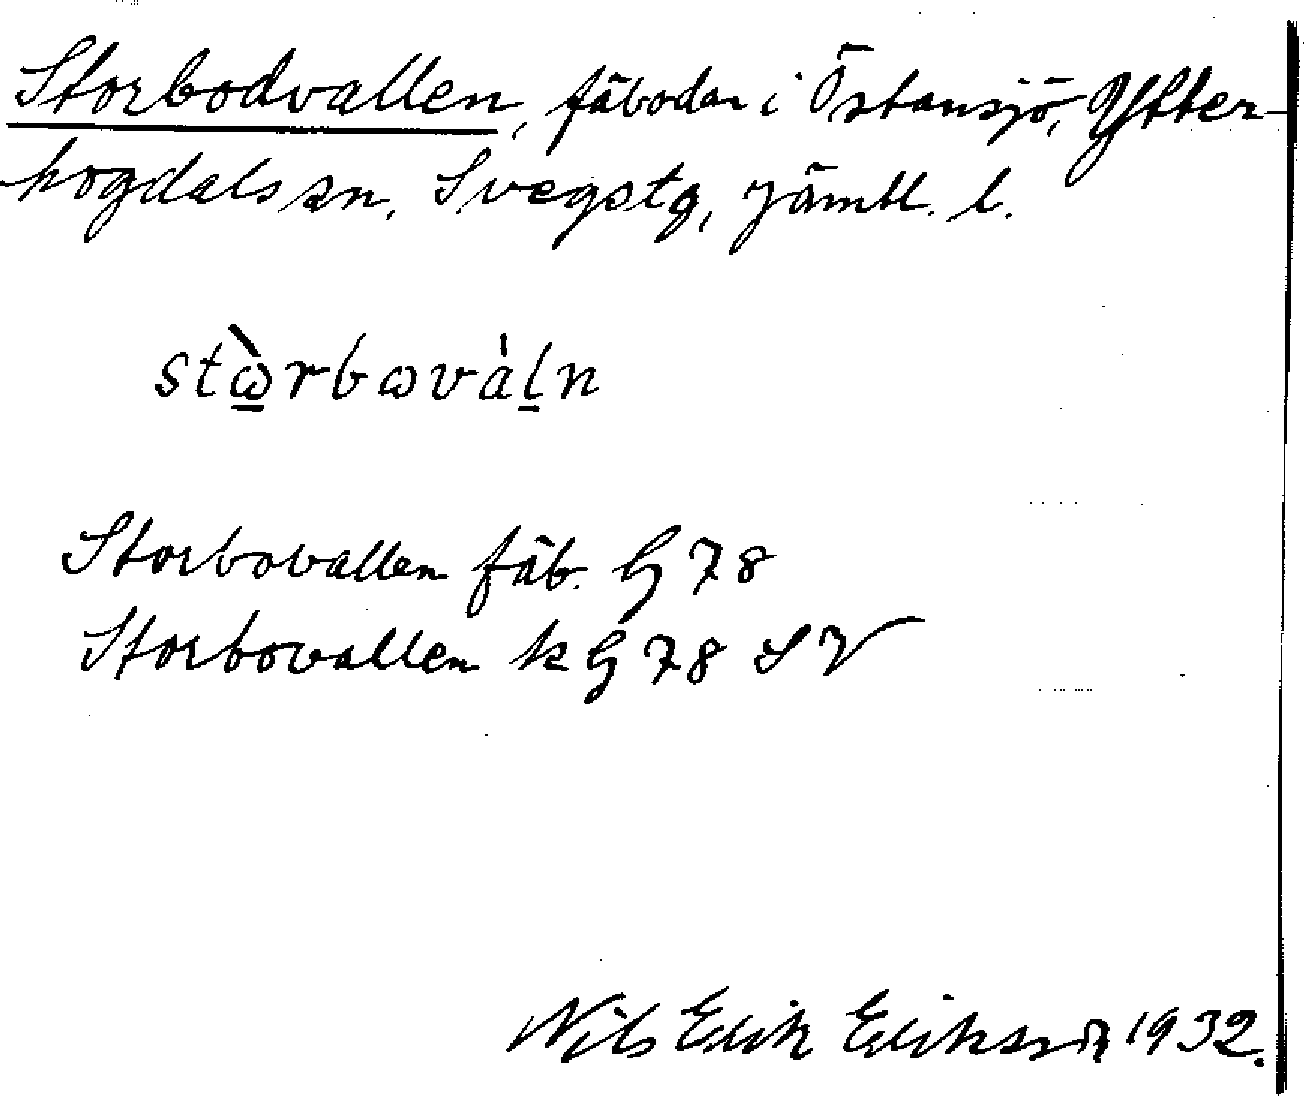 Storbodvallen, fäbodar i Östansjö, Ytter-
hogdals sn, Svegs tg, Jämtl. l.
stὼ̲rbωvàl̲n
Storbovallen fäb. G 78
Storbovallen k G 78 SV
Nils Erik Eriksson 1932.